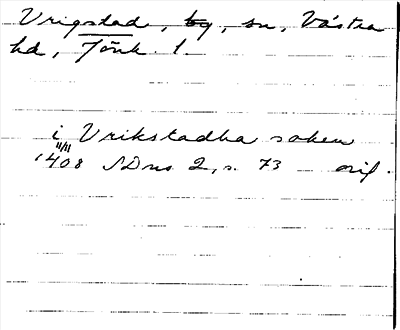 Vrigstad, by, sn, Västra
hd, Jönk. l.
i Vrikstadha soken
11/11
1408 SDns 2, s. 73 orig.